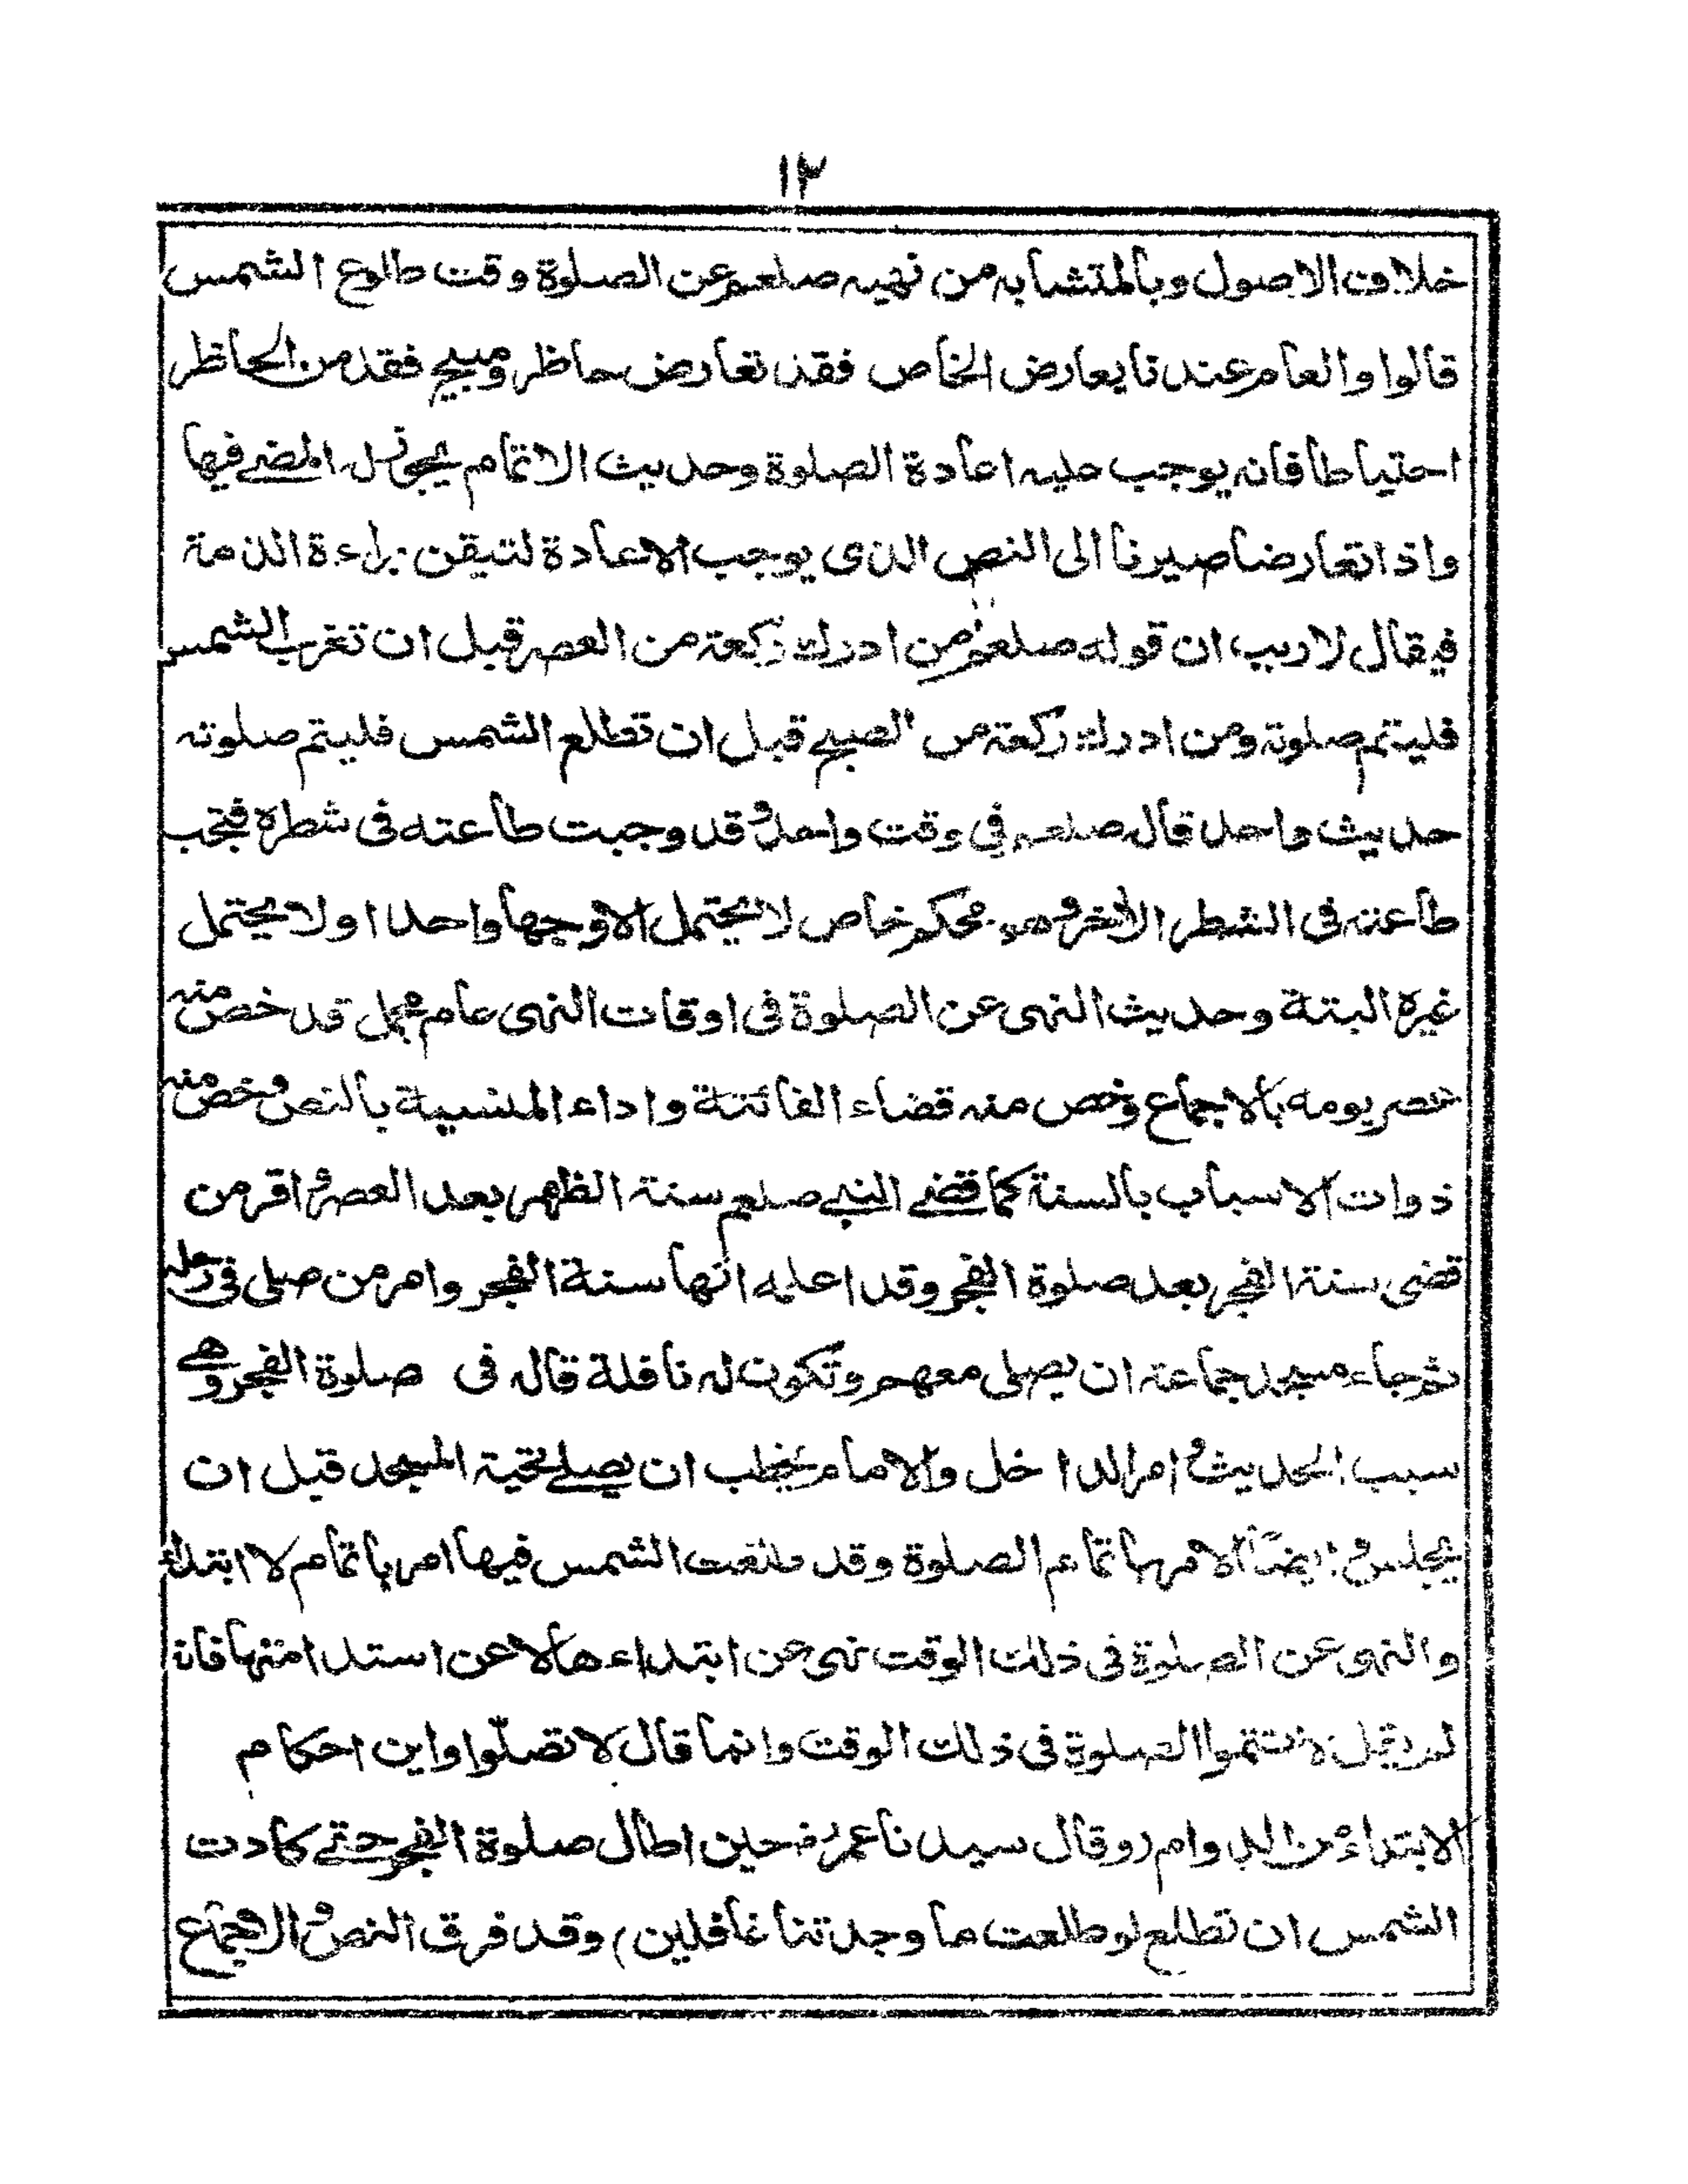 ١٣
خلاف الاصول وبالمتشابه من نهيه صلعم عن الصلوة وقت طلوع الشمس
قالوا والعام عندنا يعارض الخاص فقد تعارض حاظر ومبيح فقدمن الحاظر
احتياطا فانه يوجب عليه اعادة الصلوة وحديث الاتمام يجوز له المضے فيها
واذا تعارضا صيرنا الى النص الذى يوجب الاعادة لتيقن براءة الذمة
فيقال لا ريب ان قوله صلعم من ادرك ركعة من العصر قبل ان تغرب الشمس
فليتم صلوته ومن ادرك ركعة من الصبح قبل ان تطلع الشمس فليتم صلوته
حديث واحد قاله صلعم في وقت واحد وقد وجبت طاعته فى شطره فتجب
طاعته فى الشطر الأخر وهو محكم خاص لا يحتمل الا وجها واحدا ولا يحتمل
غيره البتة وحديث النهى عن الصلوة فى اوقات النهى عام مجمل قد خص منه
عصر يومه بالاجماع وخص منه قضاء الفائتة واداء المنسية بالنص وخص منه
ذوات الاسباب بالسنة كما قضے النبے صلعم سنة الظهر بعد العصر واقر من
قضى سنة الفجر بعد صلوة الفجر وقد اعلمه انها سنة الفجر وامر من صلى فى رحله
ثم جاء مسجد جماعة ان يصلى معهم وتكون له نافلة قاله فى صلوة الفجر وهے
سبب الحديث وامر الداخل والامام يخطب ان يصلے تحية المسجد قبل ان
يجلس وايضًا الامر باتمام الصلوة وقد طلعت الشمس فيها امر باتمام لا ابتداء
والنهى عن الصلوة فى ذلك الوقت نهى عن ابتداءها لا عن استدامتها فانه
لم يقل لا تتموا الصلوة فى ذلك الوقت وانما قال لا تصلّوا واين احكام
الابتداء من الدوام (وقال سيدنا عمر رض حين اطال صلوة الفجر حتے كادت
الشمس ان تطلع لو طلعت ما وجدتنا غافلين) وقد فرق النص والاجماع